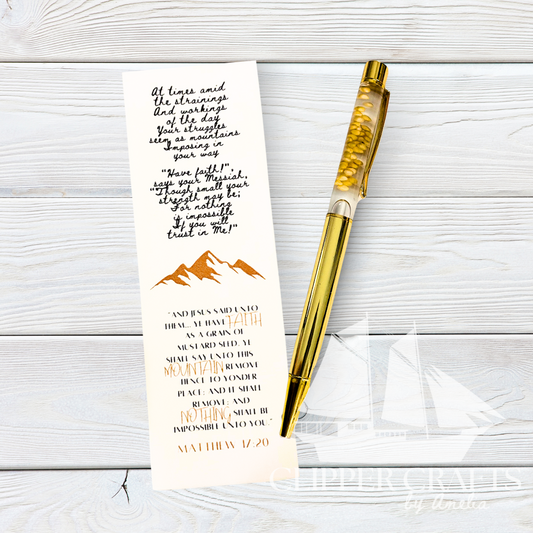 At times amid
the strainings
And workings
of the day
Your struggles
seem as mountains
Imposing in
your way
"Have faith!",
says your Messiah,
"Though small your
strength may be;
For nothing
is impossible
If you will
trust in Me!"
"AND JESUS SAID UNTO
THEM... YE HAVE FAITH
AS A GRAIN OF
MUSTARD SEED, YE
SHALL SAY UNTO THIS
MOUNTAIN REMOVE
HENCE TO YONDER
PLACE; AND IT SHALL
REMOVE; AND
NOTHING SHALL BE
IMPOSSIBLE UNTO YOU."
MATTHEW 17:20
CLIPPER CRAFTS
by Aneba